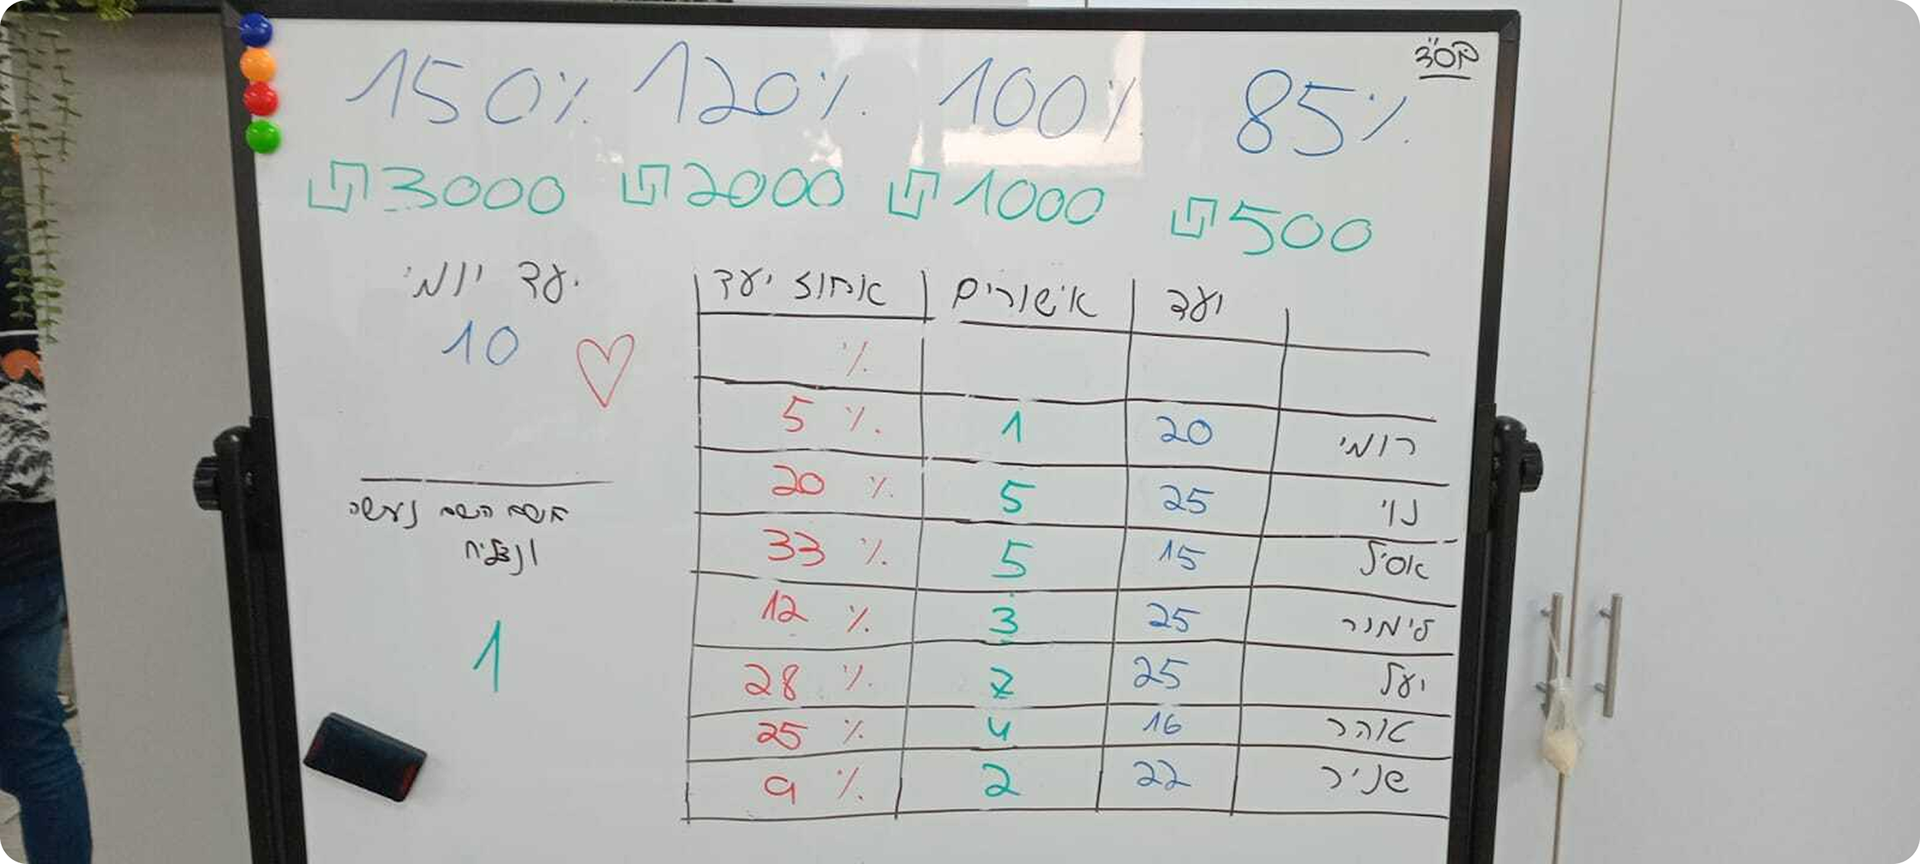 בס"ד
85% 100% 120% 150%
₪500 ₪1000 ₪2000 ₪3000
יעד אישורים אחוז יעד
%
רומי 20 1 5%
נוי 25 5 20%
אסיל 15 5 33%
לימור 25 3 12%
יעל 25 7 28%
אוהר 16 4 25%
שניר 22 2 9%
יעד יומי
10
בשם השם נעשה
ונצליח
1